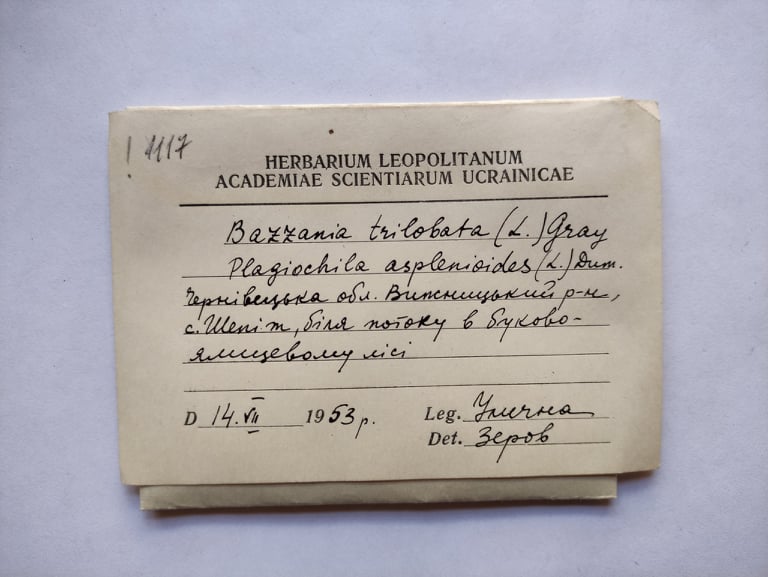 ! 4117
HERBARIUM LEOPOLITANUM
ACADEMIAE SCIENTIARUM UCRAINICAE
Bazzania trilobata (L.) Gray
Plagiochila asplenioides (L.) Dum.
Чернівецька обл. Вижницький р-н,
с. Шепіт, біля потоку в буково-
ялицевому лісі
D 14.VII 1953 р. Leg. Улична
Det. Зеров